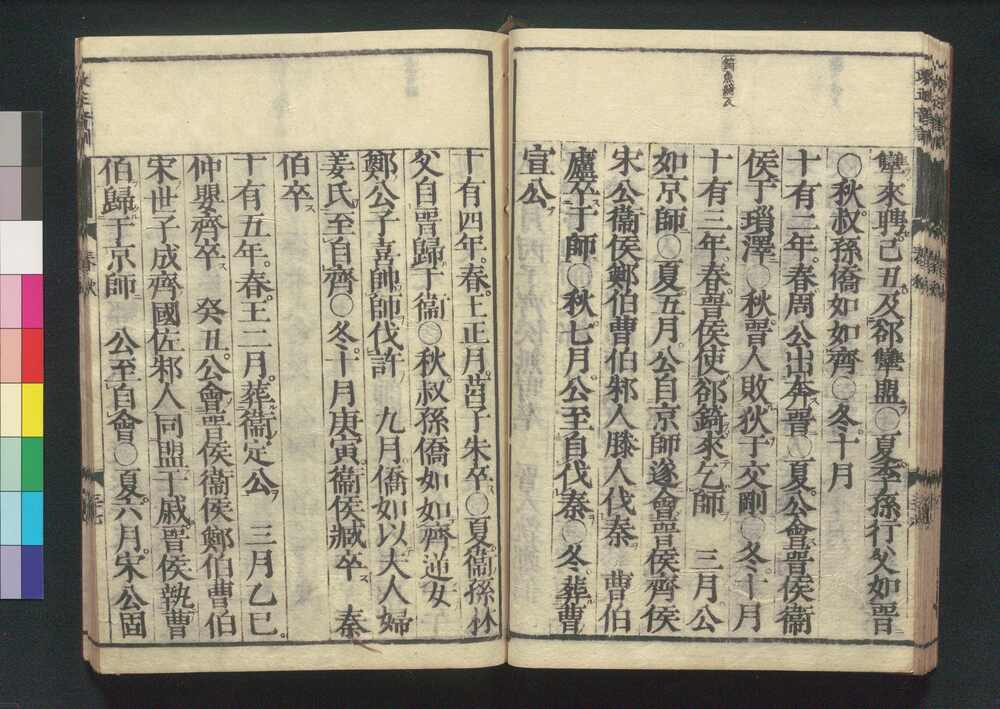 犨來聘己丑及郤犨盟○夏季孫行父如晋
○秋叔孫僑如如齊○冬十月
十有二年春周公出奔晋○夏公會晋侯衞
侯于瑣澤○秋晋人敗狄于交剛○冬十月
十有三年春晋侯使郤錡來乞師　三月公
如京師○夏五月公自京師遂會晋侯齊侯
宋公衞侯鄭伯曹伯邾人滕人伐秦　曹伯
廬卒于師○秋七月公至自伐秦○冬葬曹
宣公
十有四年春王正月莒子朱卒○夏衞孫林
父自晋歸于衞○秋叔孫僑如如齊逆女
鄭公子喜帥師伐許　九月僑如以夫人婦
姜氏至自齊○冬十月庚寅衞侯臧卒　秦
伯卒
十有五年春王二月葬衞定公　三月乙巳
仲嬰齊卒　癸丑公會晋侯衞侯鄭伯曹伯
宋世子成齊國佐邾人同盟于戚晋侯執曹
伯歸于京師　公至自會○夏六月宋公固